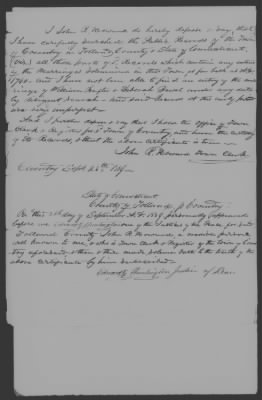 I John R. do hereby depose & say, that
I have carefully searched the Public Records of the Town
of Coventry in Tolland County & State of Connecticut,
(viz.) all those parts of Records which contain any entry
of the Marriages solemnized in this Town as far back as A.D.
1760 and I have not been able to find an entry of the mar-
riage of William & Deborah under any date
by diligent search and said Record at this early period
are very imperfect.
And I further depose & say that I have the Office of Town
Clerk & Reg. for sd Town of Coventry, and have the custody
of its Records & that the above Certificate is true
John R. Town Clerk
Coventry Sept. 26th
State of Connecticut
County of Tolland Coventry
On this day of September A.D. personally appeared
before me of the Justices of the Peace for said
Tolland County John R. a credible person
well known to me, & who is Town Clerk & Register of the town of Coven-
try aforesaid & then & there made solemn Oath to the truth of the
above Certificate by him subscribed
Huntington Justice of Peace